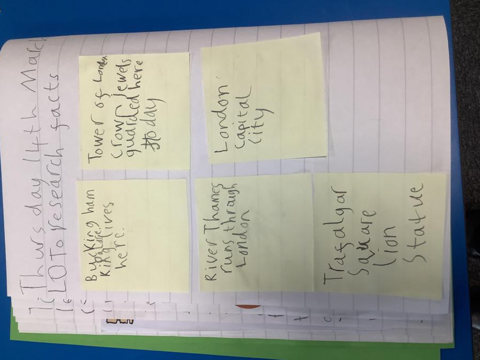 Thursday 14th March
LO To research facts
Buckingham
Palace
King lives
here.
Tower of London
crown jewels
guarded here
today
River Thames
runs through
London
London
capital
city
Trafalgar
Square
lion
statue